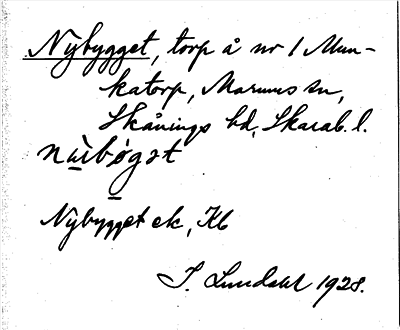 Nybygget, torp å nr 1 Mun-
katorp, Marums sn,
Skånings hd, Skarab. l.
nùbøgət
Nybygget ek, Kb
I. Lundahl 1928.